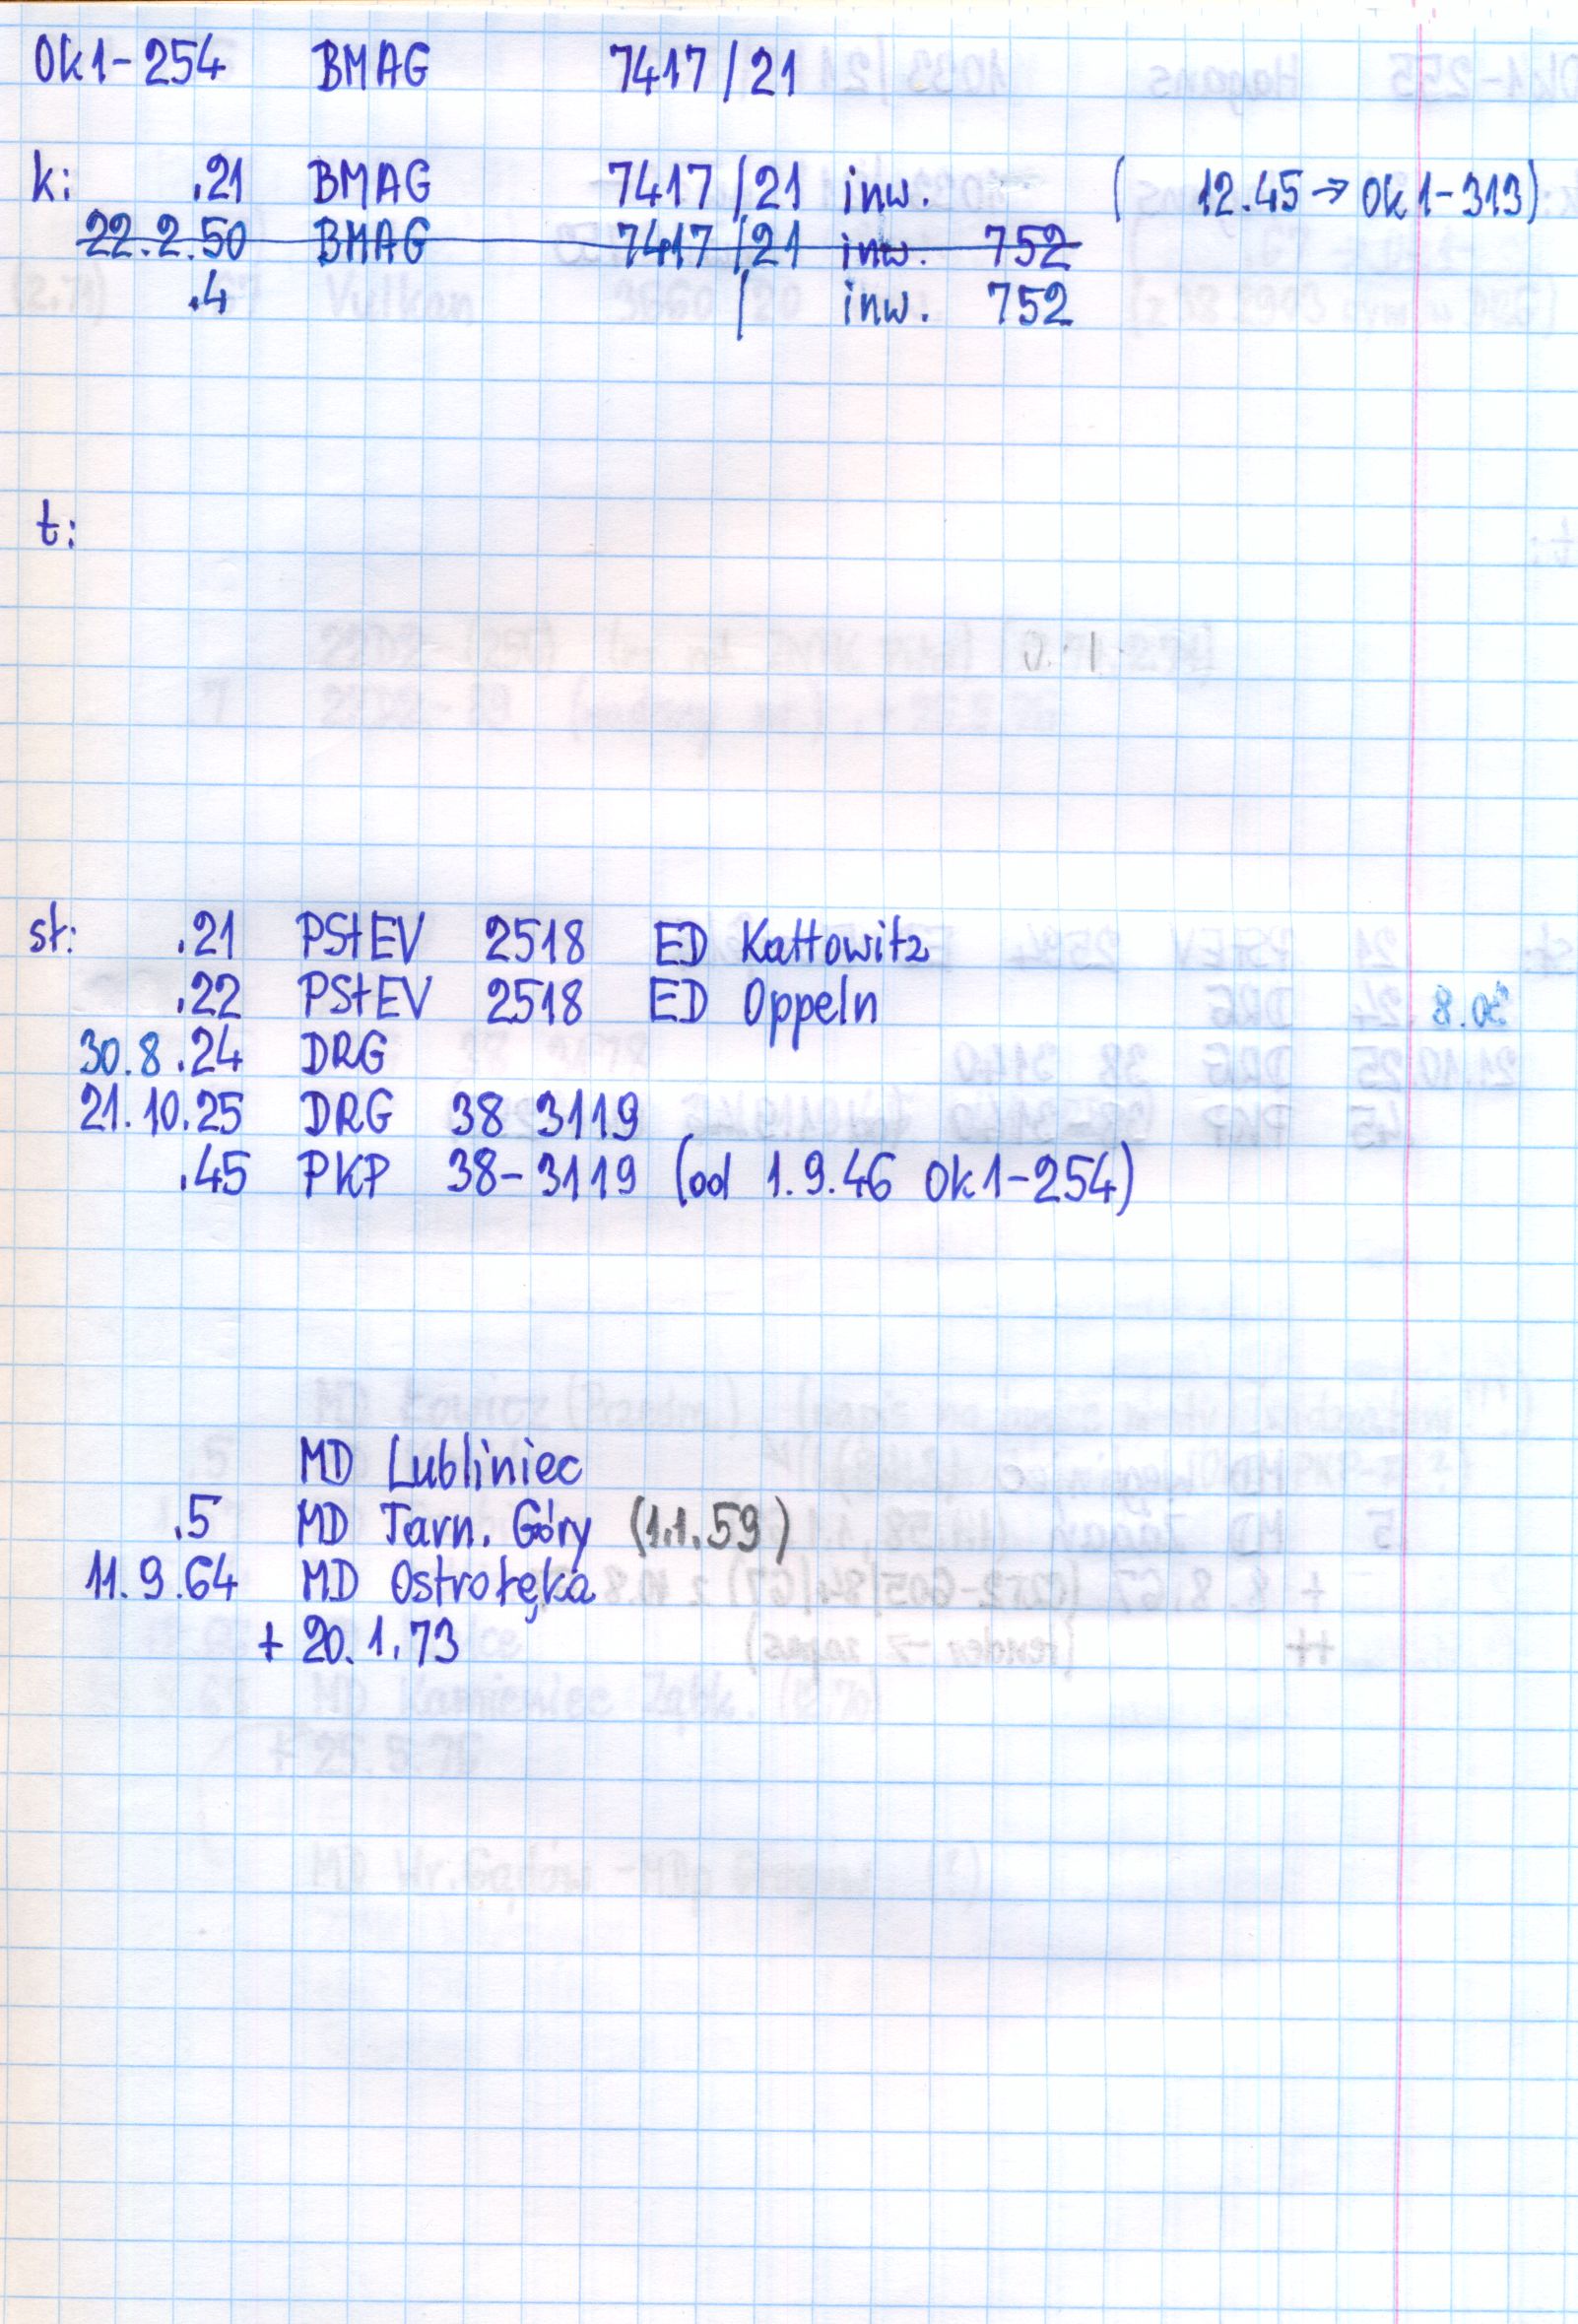 Ok1-254 BMAG 7417/21
k: .21 BMAG 7417/21 inw. ( 12.45 → Ok1-313)
22.2.50 BMAG 7417/21 inw. 752
.4 / inw. 752
t:
st: .21 PStEV 2518 ED Kattowitz
.22 PStEV 2518 ED Oppeln
30.8.24 DRG
21.10.25 DRG 38 3119
.45 PKP 38-3119 (od 1.9.46 Ok1-254)
MD Lubliniec
.5 MD Tarn. Góry (1.1.59)
11.9.64 MD Ostrołęka
+ 20.1.73